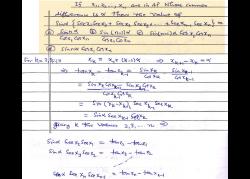 If x₁, x₂, ..., xₙ are in AP whose common
difference is α then the value of
sinα {sec x₁ sec x₂ + sec x₂ sec x₃ + ... sec xₙ₋₁ sec xₙ} =
(a) sin nα / cos x₁ cos xₙ (b) sin (n-1)α / cos x₁ cos xₙ (c) sin(n+1)α cos x₁ cos xₙ
(d) sin nα cos x₁ cos xₙ
xₖ = x₁ + (k-1)α ⇒ xₖ - xₖ₋₁ = α
⇒ tan xₖ - tan xₖ₋₁ = sin xₖ / cos xₖ - sin xₖ₋₁ / cos xₖ₋₁
= sin (xₖ - xₖ₋₁) sec xₖ sec xₖ₋₁
= sinα sec xₖ₋₁ sec xₖ
giving k the values 2, 3, ... n ⇒
sinα sec x₂ sec x₁ = tan x₂ - tan x₁
sinα sec x₃ sec x₂ = tan x₃ - tan x₂
sec xₙ sec xₙ₋₁ = tan xₙ - tan xₙ₋₁